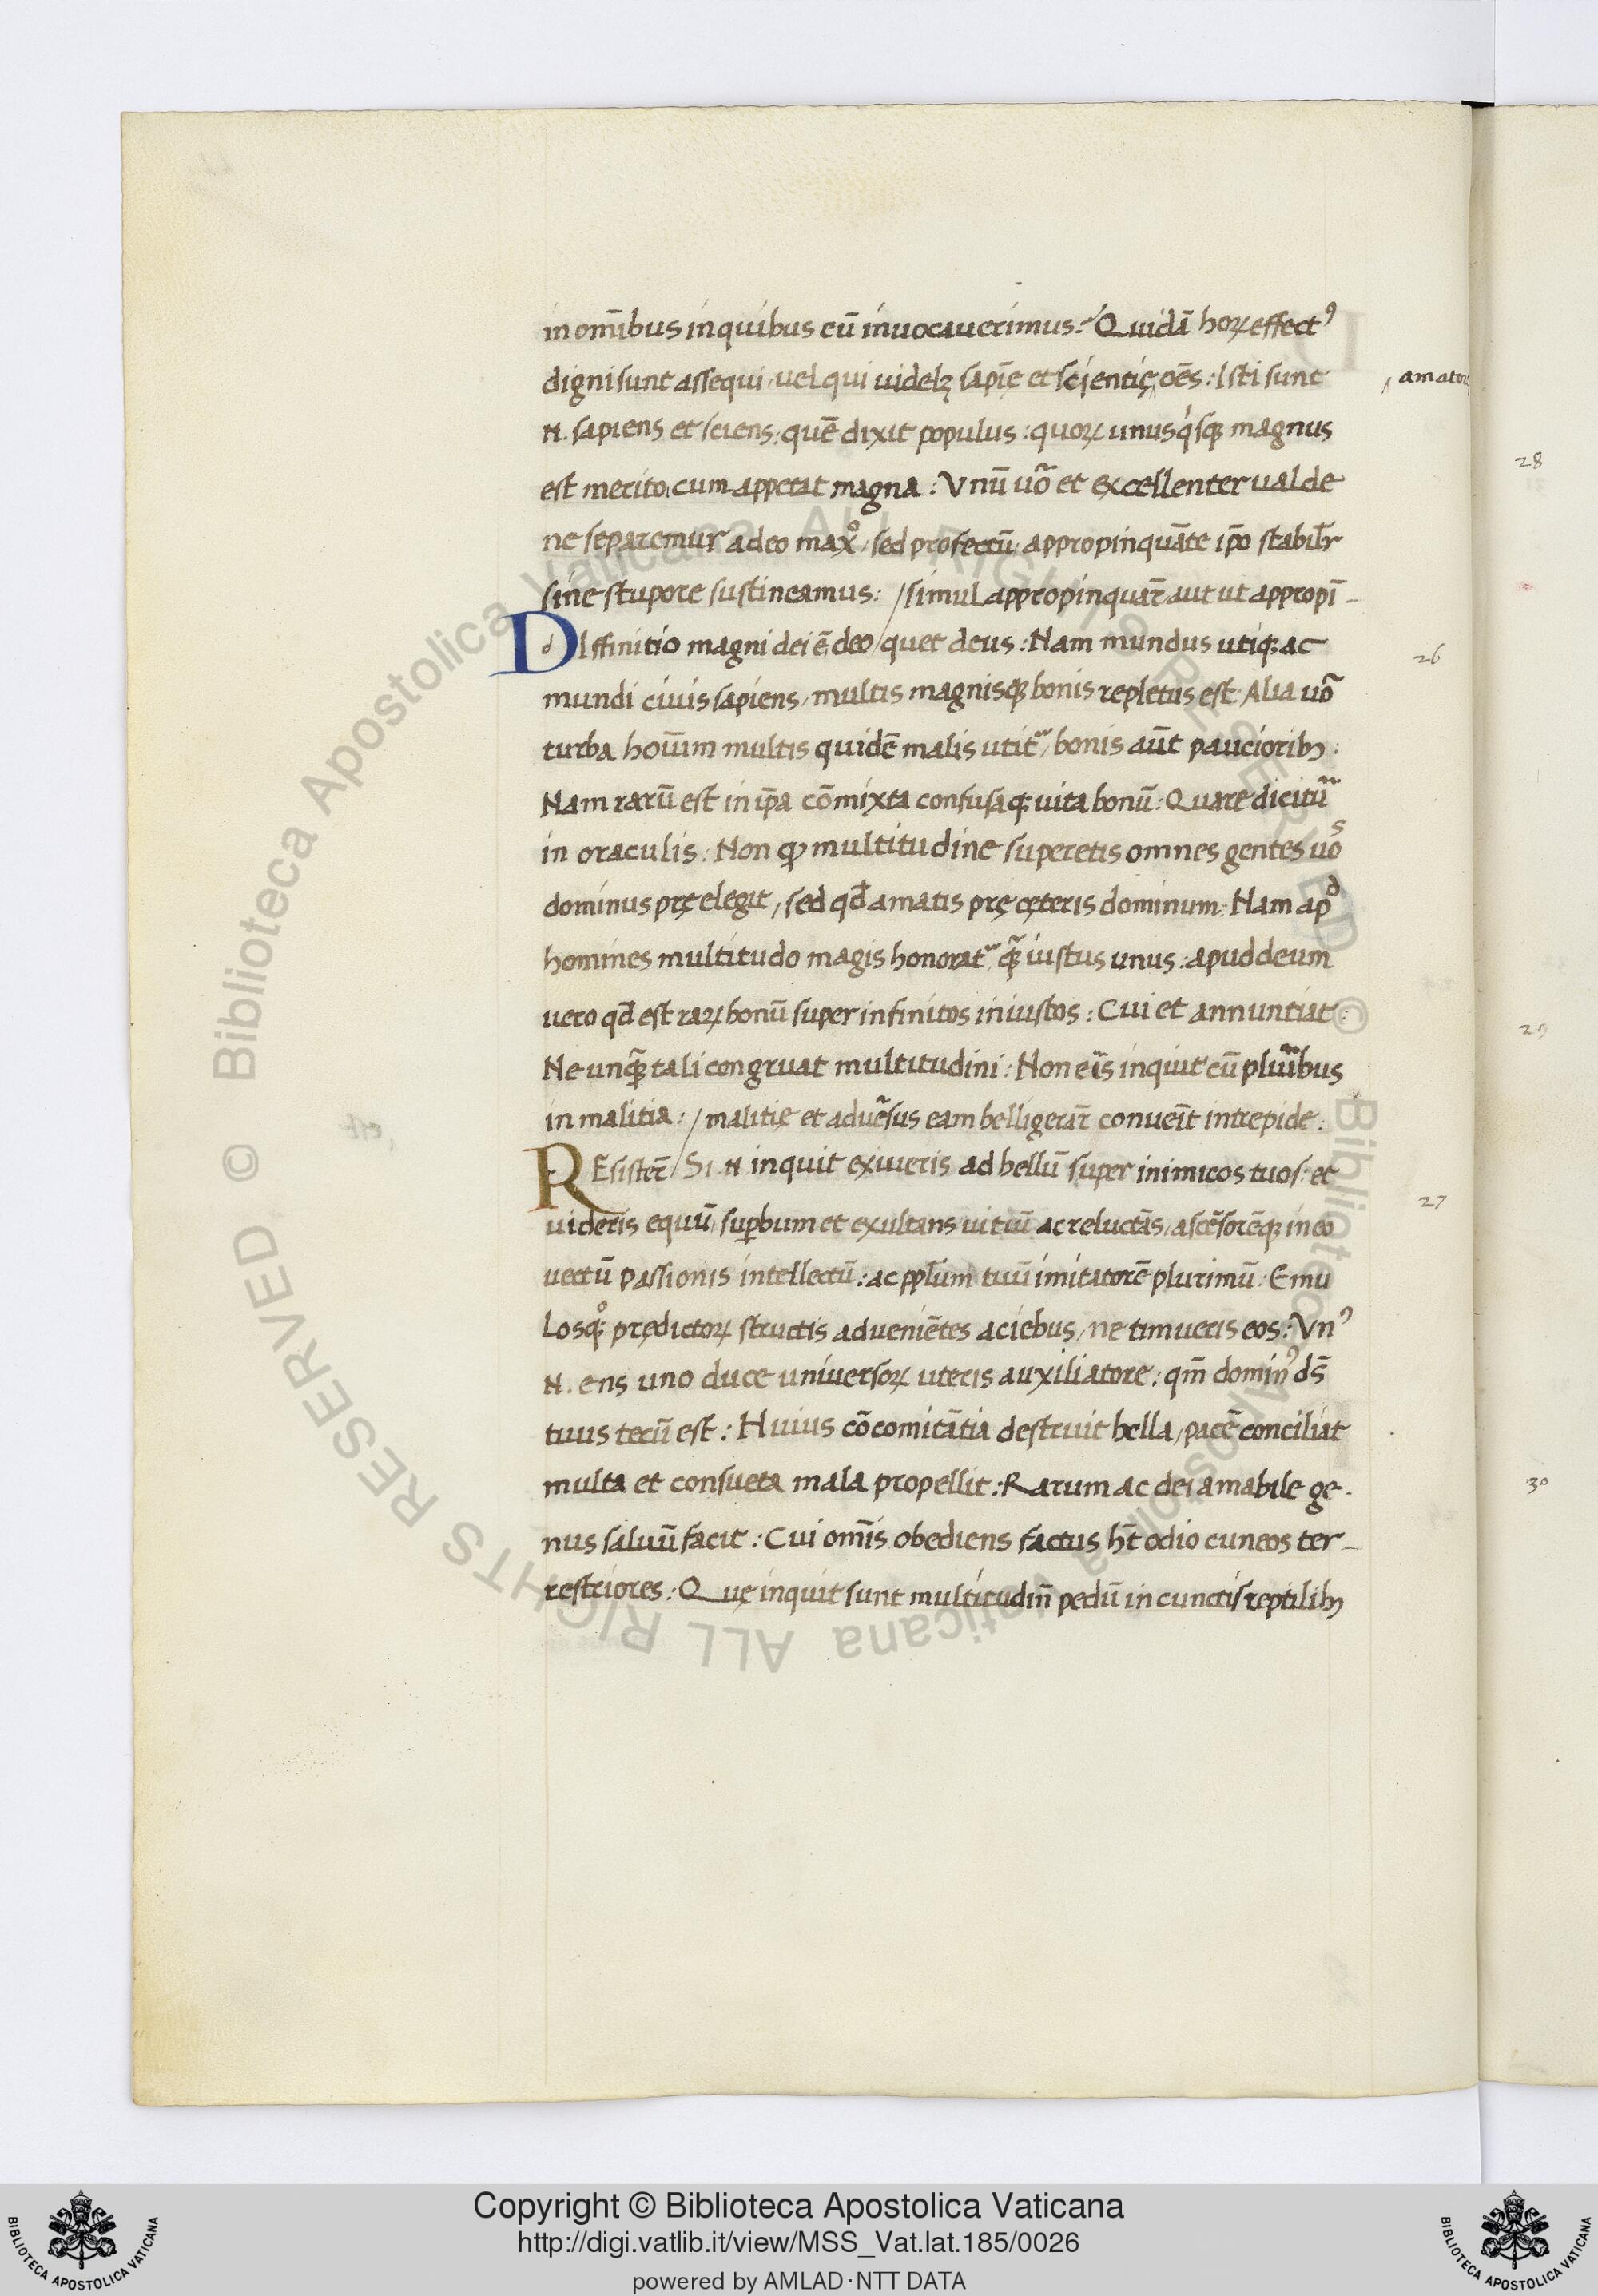 in om̄ibus in quibus eū inuocauerimus: Quidā horꝝ effectꝰ
digni sunt assequi / uel qui uidelꝫ sapīę et scientię, oēs: Isti sunt
amatores
N. sapiens et sciens: quē dixit populus: quorꝝ unusq̇sqꝫ magnus
est merito, cum appetat magna: Vnū uō et excellenter ualde
ne separemur a deo maxᵒ, sed profectū appropinquāte ip̄o stabilr̄
sine stupore sustineamus: / simul appropinquar̄ aut ut appropī-
DIffinitio magni dei ē, deo / quet deus: Nam mundus utiqꝫ ac
26
mundi ciuis sapiens, multis magnisqꝫ bonis repletus est. Alia uō
turba hoīum multis quidē malis utit᷑, bonis aūt paucioribꝫ:
Nam rarū est in ip̄a cōmixta confusaqꝫ uita bonū: Quare dicitu᷑
in oraculis: Non ꝙ multitudine superetis omnes gentes uoˢ
dominus pręelegit, sed qd̄ amatis prę cęteris dominum: Nam apᵈ
homines multitudo magis honorat᷑ qꝫ̄ iustus unus: apud deum
uero qd̄ est rarꝝ bonū super infinitos iniustos: Cui et annuntiat:
Ne unqꝫ̄ tali congruat multitudini: Non eīs inquit cū pluribus
in malitia: / malitię et aduersus eam belligerar̄ conueīt intrepide:
REsister̄ / Si. N inquit exiueris ad bellū super inimicos tuos: et
27
uideris equū, suꝑbum et exultans uitiū ac reluctās, ascēsorēqꝫ in eo
uectū passionis intellectū: ac pp̄lum tuū imitatorē plurimū: Emu
losqꝫ prędictorꝝ structis aduenientes aciebus, ne timueris eos: Vnꝰ
N. ens uno duce uniuersorꝝ uteris auxiliatore: qm̄ dominꝰ ds̄
tuus tecū est: Huius cōcomitātia destruit bella, pacē conciliat
multa et consueta mala propellit: Rarum ac dei amabile ge-
nus saluū facit: Cui om̄is obediens factus h̄t odio cuneos ter-
restriores: Quę inquit sunt multitudin̄ pedū in cunctis reptilibꝫ
28
29
30
Copyright © Biblioteca Apostolica Vaticana
http://digi.vatlib.it/view/MSS_Vat.lat.185/0026
powered by AMLAD·NTT DATA
BIBLIOTECA APOSTOLICA VATICANA
BIBLIOTECA APOSTOLICA VATICANA
© Biblioteca Apostolica Vaticana ALL RIGHTS RESERVED © Biblioteca Apostolica Vaticana ALL RIGHTS RESERVED